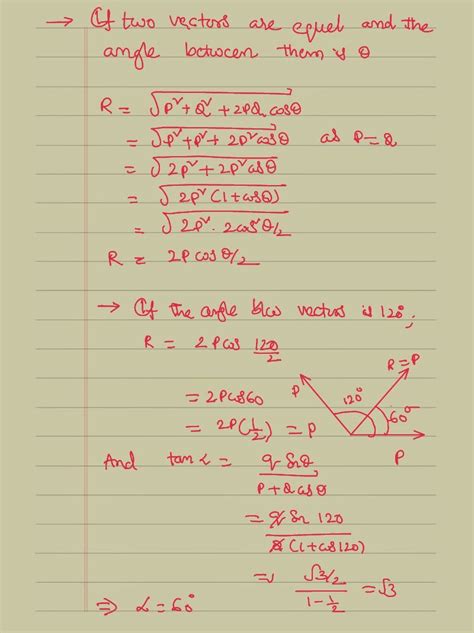 → If two vectors are equal and the
angle between them is θ
R = √P²+Q²+2PQ cosθ
= √P²+P²+2P²cosθ as P=Q
= √2P²+2P²cosθ
= √2P²(1+cosθ)
= √2P². 2cos²θ/2
R = 2P cos θ/2
→ If the angle b/w vectors is 120°,
R = 2P cos 120/2
R=P
P
120°
60°
P
= 2P cos60
= 2P(1/2) = P
And tan α = Q Sinθ / P+Q cosθ
= Q Sin 120 / Q(1+cos120)
= √3/2 / 1-1/2 = √3
⇒ α = 60°